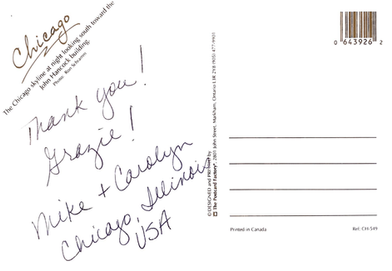 Chicago
The Chicago skyline at night looking south toward the
John Hancock building.
Photo: Ron Schramm
Thank you!
Grazie!
Mike + Carolyn
Chicago, Illinois
USA
0 643926 2
© DESIGNED and PRINTED by
The Postcard Factory®, 2801 John Street, Markham, Ontario L3R 2Y8 (905) 477-9901
Printed in Canada
Ref: CH-549